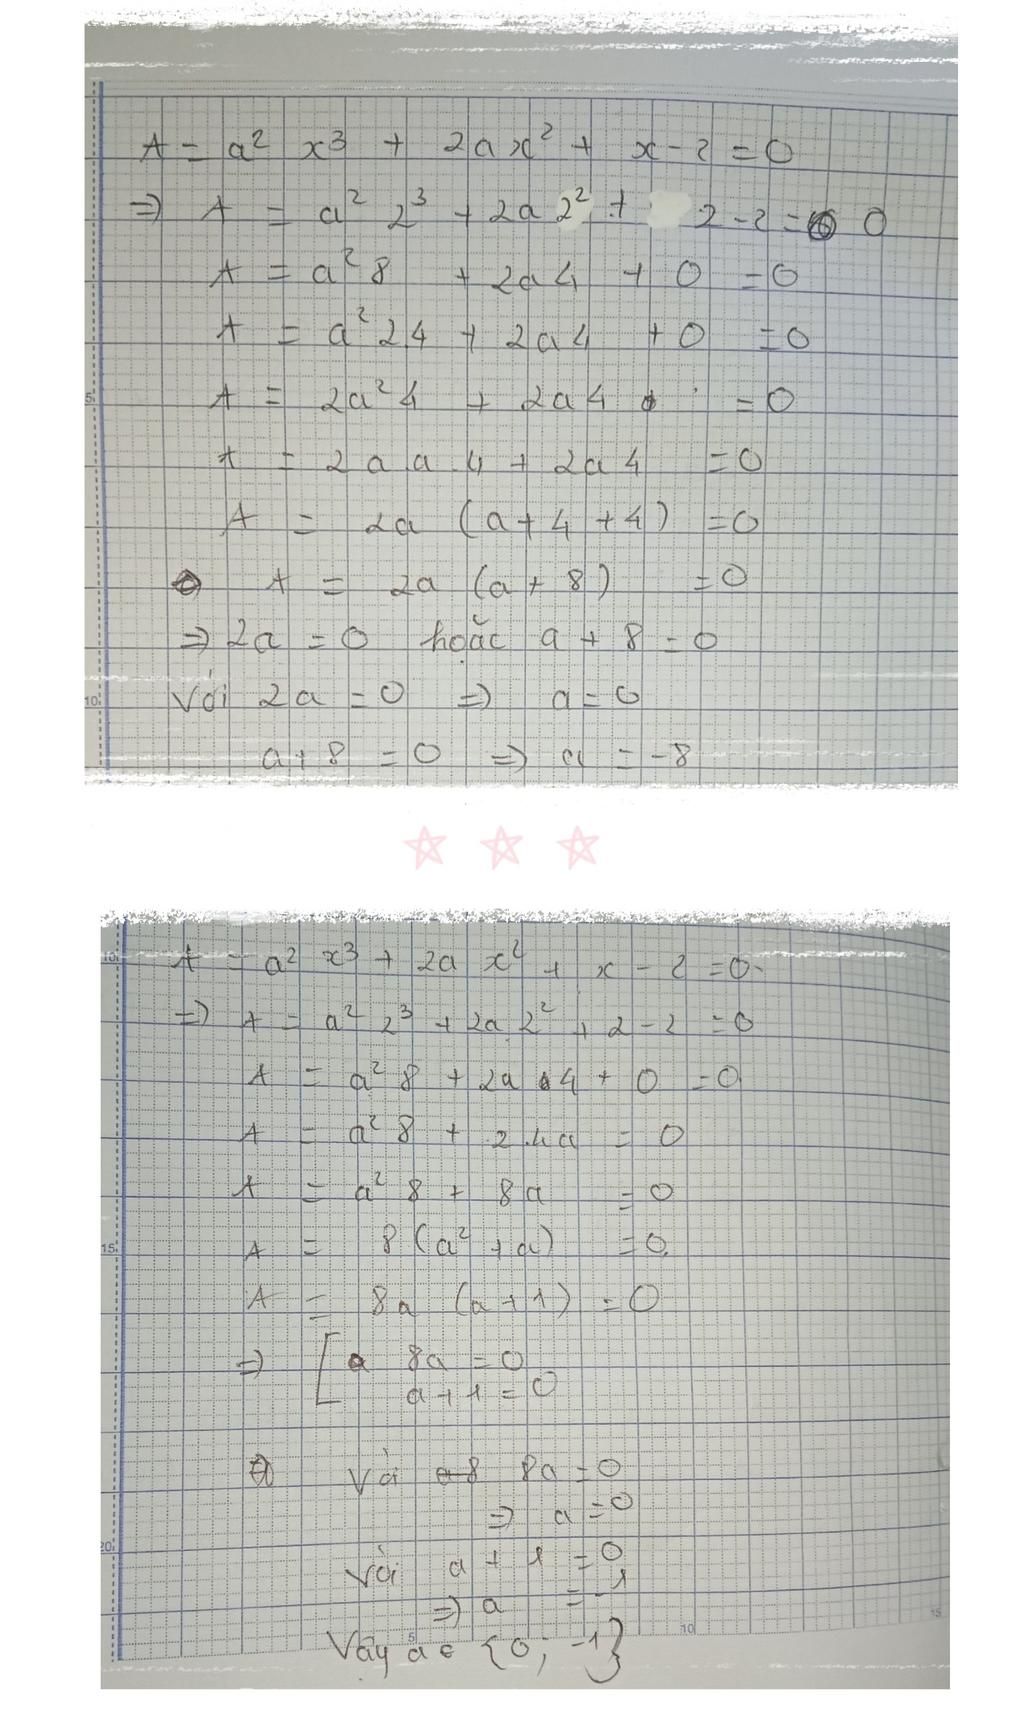 A = a² x³ + 2ax² + x - 2 = 0
=> A = a² 2³ + 2a 2² + 2 - 2 = 0
A = a² 8 + 2a4 + 0 = 0
A = a² 24 + 2a4 + 0 = 0
5
A = 2a² 4 + 2a4 = 0
A = 2a a . 4 + 2a4 = 0
A = 2a (a + 4 + 4) = 0
A = 2a (a + 8) = 0
=> 2a = 0 hoặc a + 8 = 0
10
Với 2a = 0 => a = 0
a + 8 = 0 => a = -8
10
A = a² x³ + 2a x² + x - 2 = 0
=> A = a² 2³ + 2a 2² + 2 - 2 = 0
A = a² 8 + 2a 4 + 0 = 0
A = a² 8 + 2.4a = 0
A = a² 8 + 8a = 0
15
A = 8(a² + a) = 0
A = 8a (a + 1) = 0
=> [ 8a = 0
a + 1 = 0
Với 8a = 0
=> a = 0
20
Với a + 1 = 0
=> a = -1
5 10 15
Vậy a ∈ {0; -1}